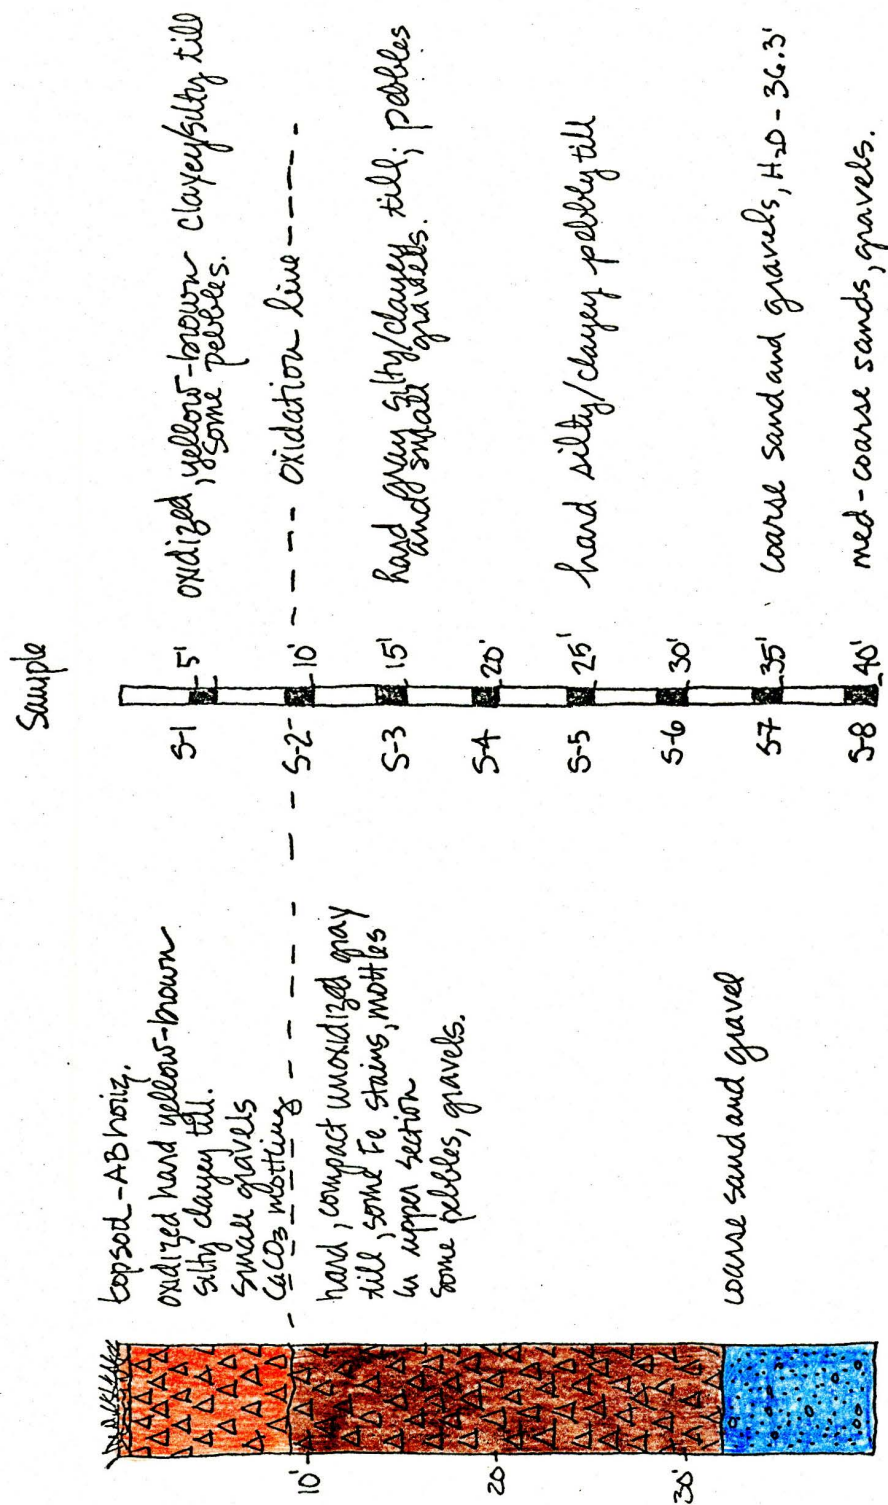 topsoil - AB horiz.
oxidized hard yellow-brown
silty clayey till.
small gravels
CaCO3 mottling
hard, compact unoxidized gray
till, some Fe stains, mottles
in upper section
some pebbles, gravels.
coarse sand and gravel
10'
20'
30'
Sample
S-1
S-2
S-3
S-4
S-5
S-6
S-7
S-8
5'
10'
15'
20'
25'
30'
35'
40'
oxidized, yellow-brown clayey/silty till
some pebbles.
oxidation line
hard gray silty/clayey till; pebbles
and small gravels.
hard silty/clayey pebbly till
coarse sand and gravels, H2O - 36.3'
med-coarse sands, gravels.